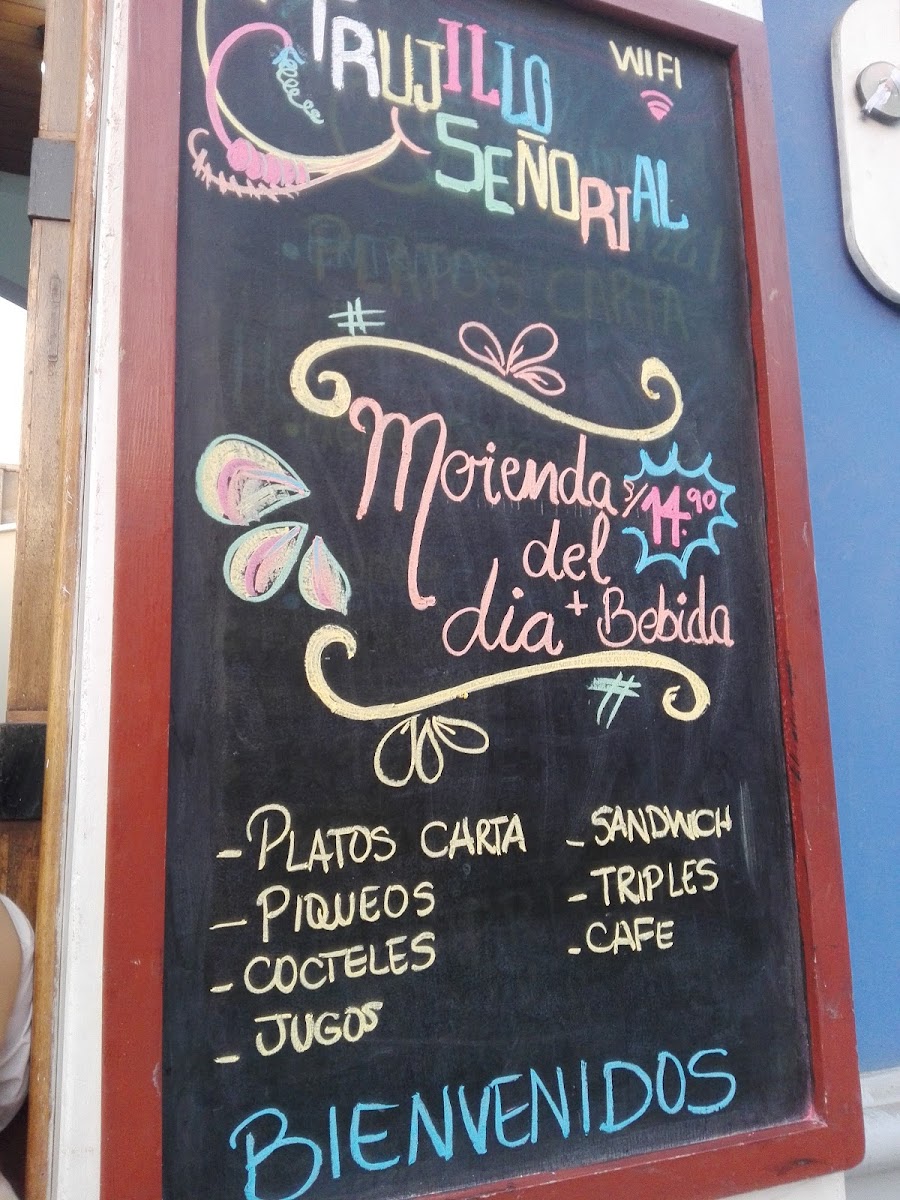 TRUJILLO
WIFI
SEÑORIAL
PLATOS CARTA
Morienda S/14.90
del
dia + Bebida
- PLATOS CARTA
- PIQUEOS
- COCTELES
- JUGOS
- SANDWICH
- TRIPLES
- CAFE
BIENVENIDOS